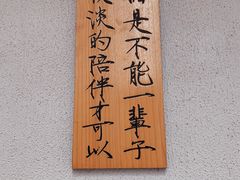 是不能一輩子
淡的陪伴才可以